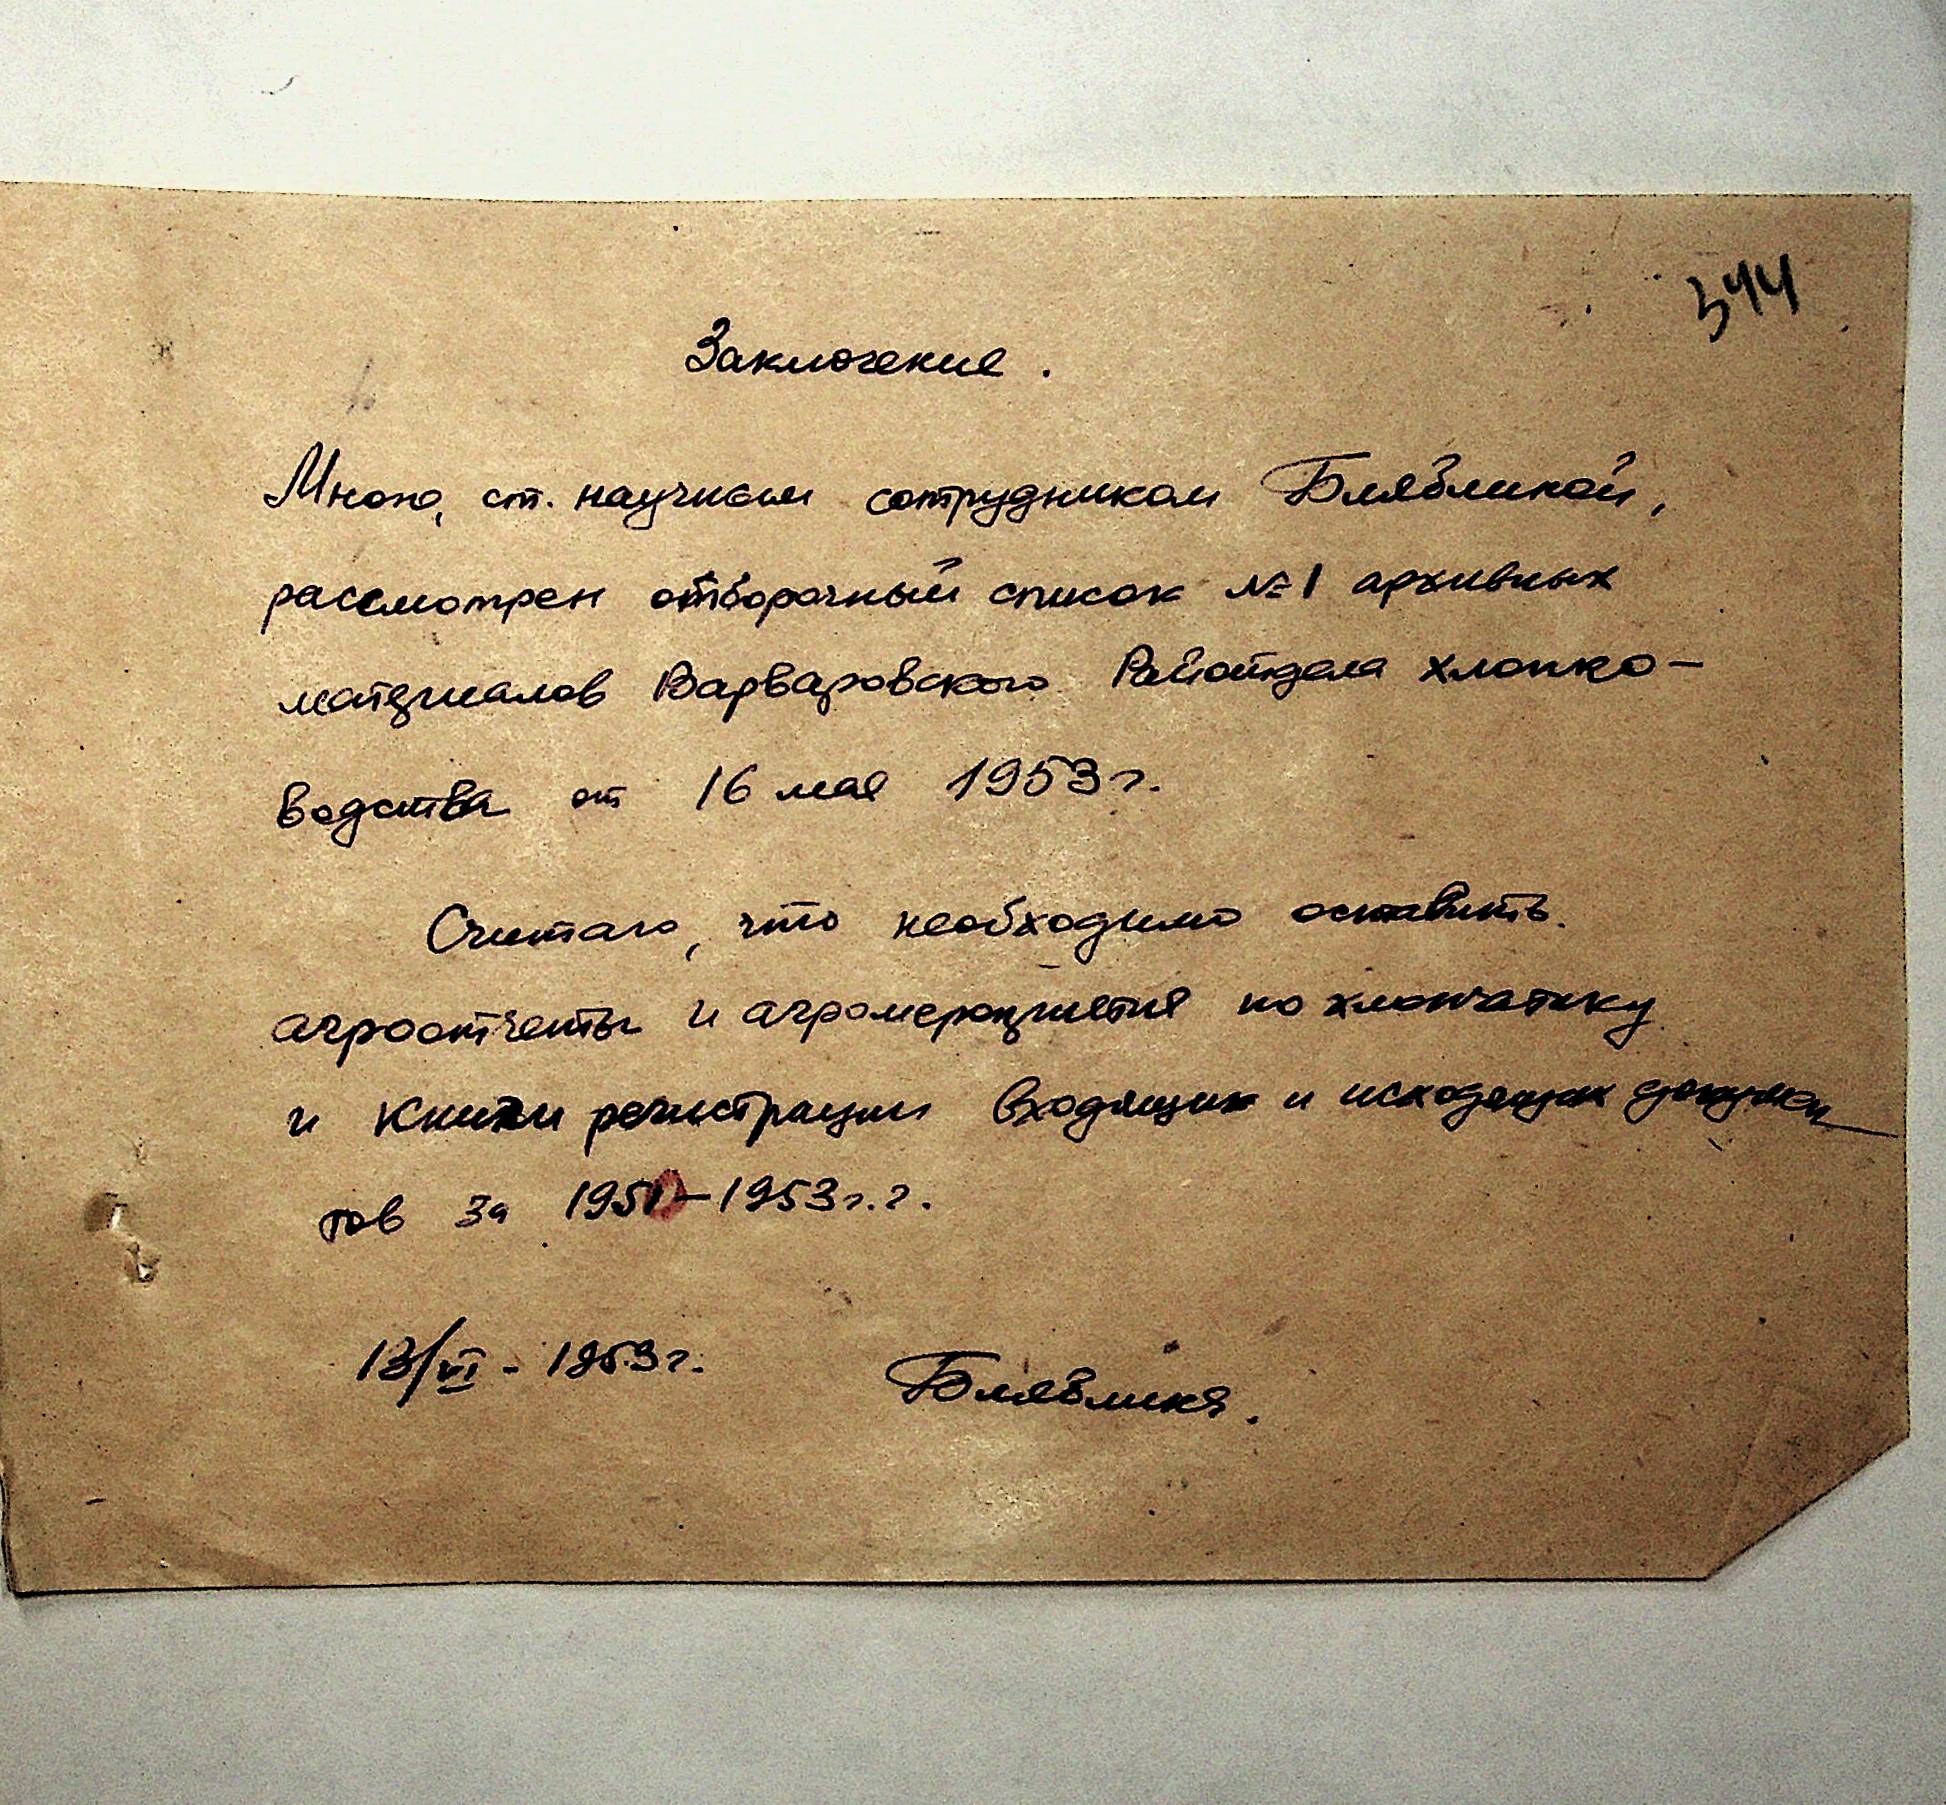 344
Заключение.
Мною, ст. научным сотрудником Блявлиной,
рассмотрен отборочный список №1 архивных
материалов Варваровского Райотдела хлопко-
водства от 16 мая 1953 г.
Считаю, что необходимо оставить
агроотчеты и агромероприятия по хлопчатнику
и книги регистрации входящих и исходящих докумен
тов за 1951-1953 г.г.
13/VI - 1953 г. Блявлина.